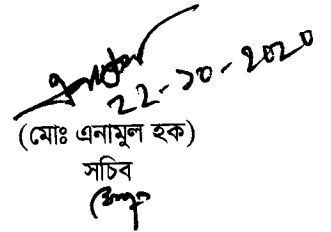 22-10-2020
(মোঃ এনামুল হক)
সচিব